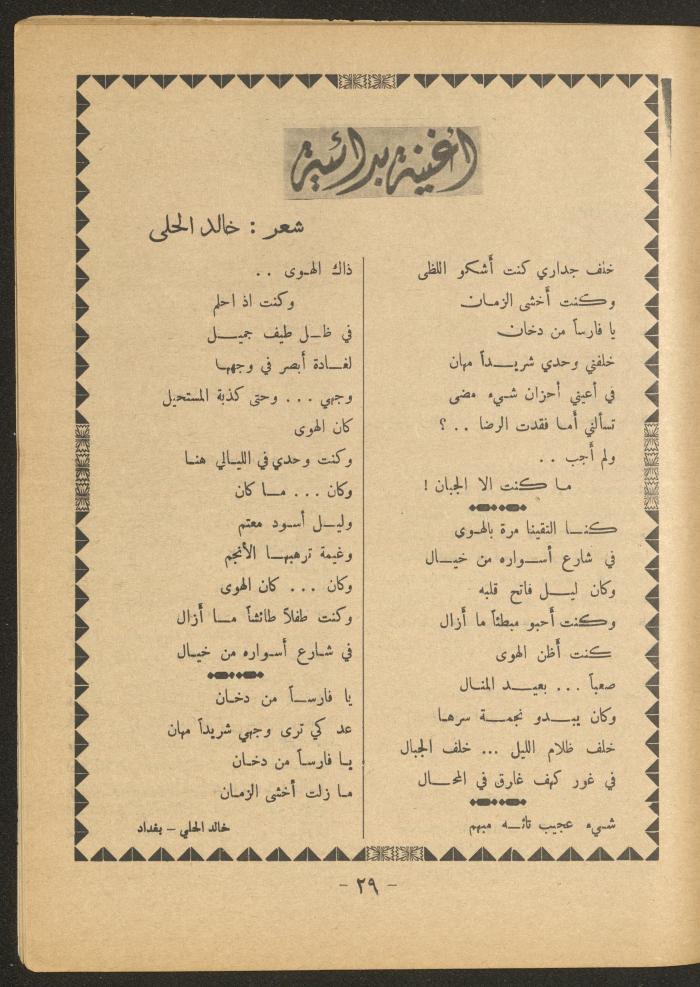 أغنية بدائية
شعر : خالد الحلي
خلف جداري كنت أشكو اللظى
وكنت أخشى الزمان
يا فارساً من دخان
خلفني وحدي شريداً مهان
في أعيني أحزان شيء مضى
تسألني أما فقدت الرضا . . ؟
ولم أجب . .
ما كنت الا الجبان !
كنا التقينا مرة بالهوى
في شارع أسواره من خيال
وكان ليل فاتح قلبه
وكنت أحبو مبطئاً ما أزال
كنت أظن الهوى
صعباً ... بعيد المنال
وكان يبدو نجمة سرها
خلف ظلام الليل ... خلف الجبال
في غور كهف غارق في المحال
شيء عجيب تائه مبهم
ذاك الهوى . .
وكنت اذ احلم
في ظل طيف جميل
لغادة أبصر في وجهها
وجهي ... وحتى كذبة المستحيل
كان الهوى
وكنت وحدي في الليالي هنا
وكان ... ما كان
وليل أسود معتم
وغيمة ترهبها الأنجم
وكان ... كان الهوى
وكنت طفلاً طائشاً ما أزال
في شارع أسواره من خيال
يا فارساً من دخان
عد كي ترى وجهي شريداً مهان
يا فارساً من دخان
ما زلت أخشى الزمان
خالد الحلي – بغداد
- ٢٩ -